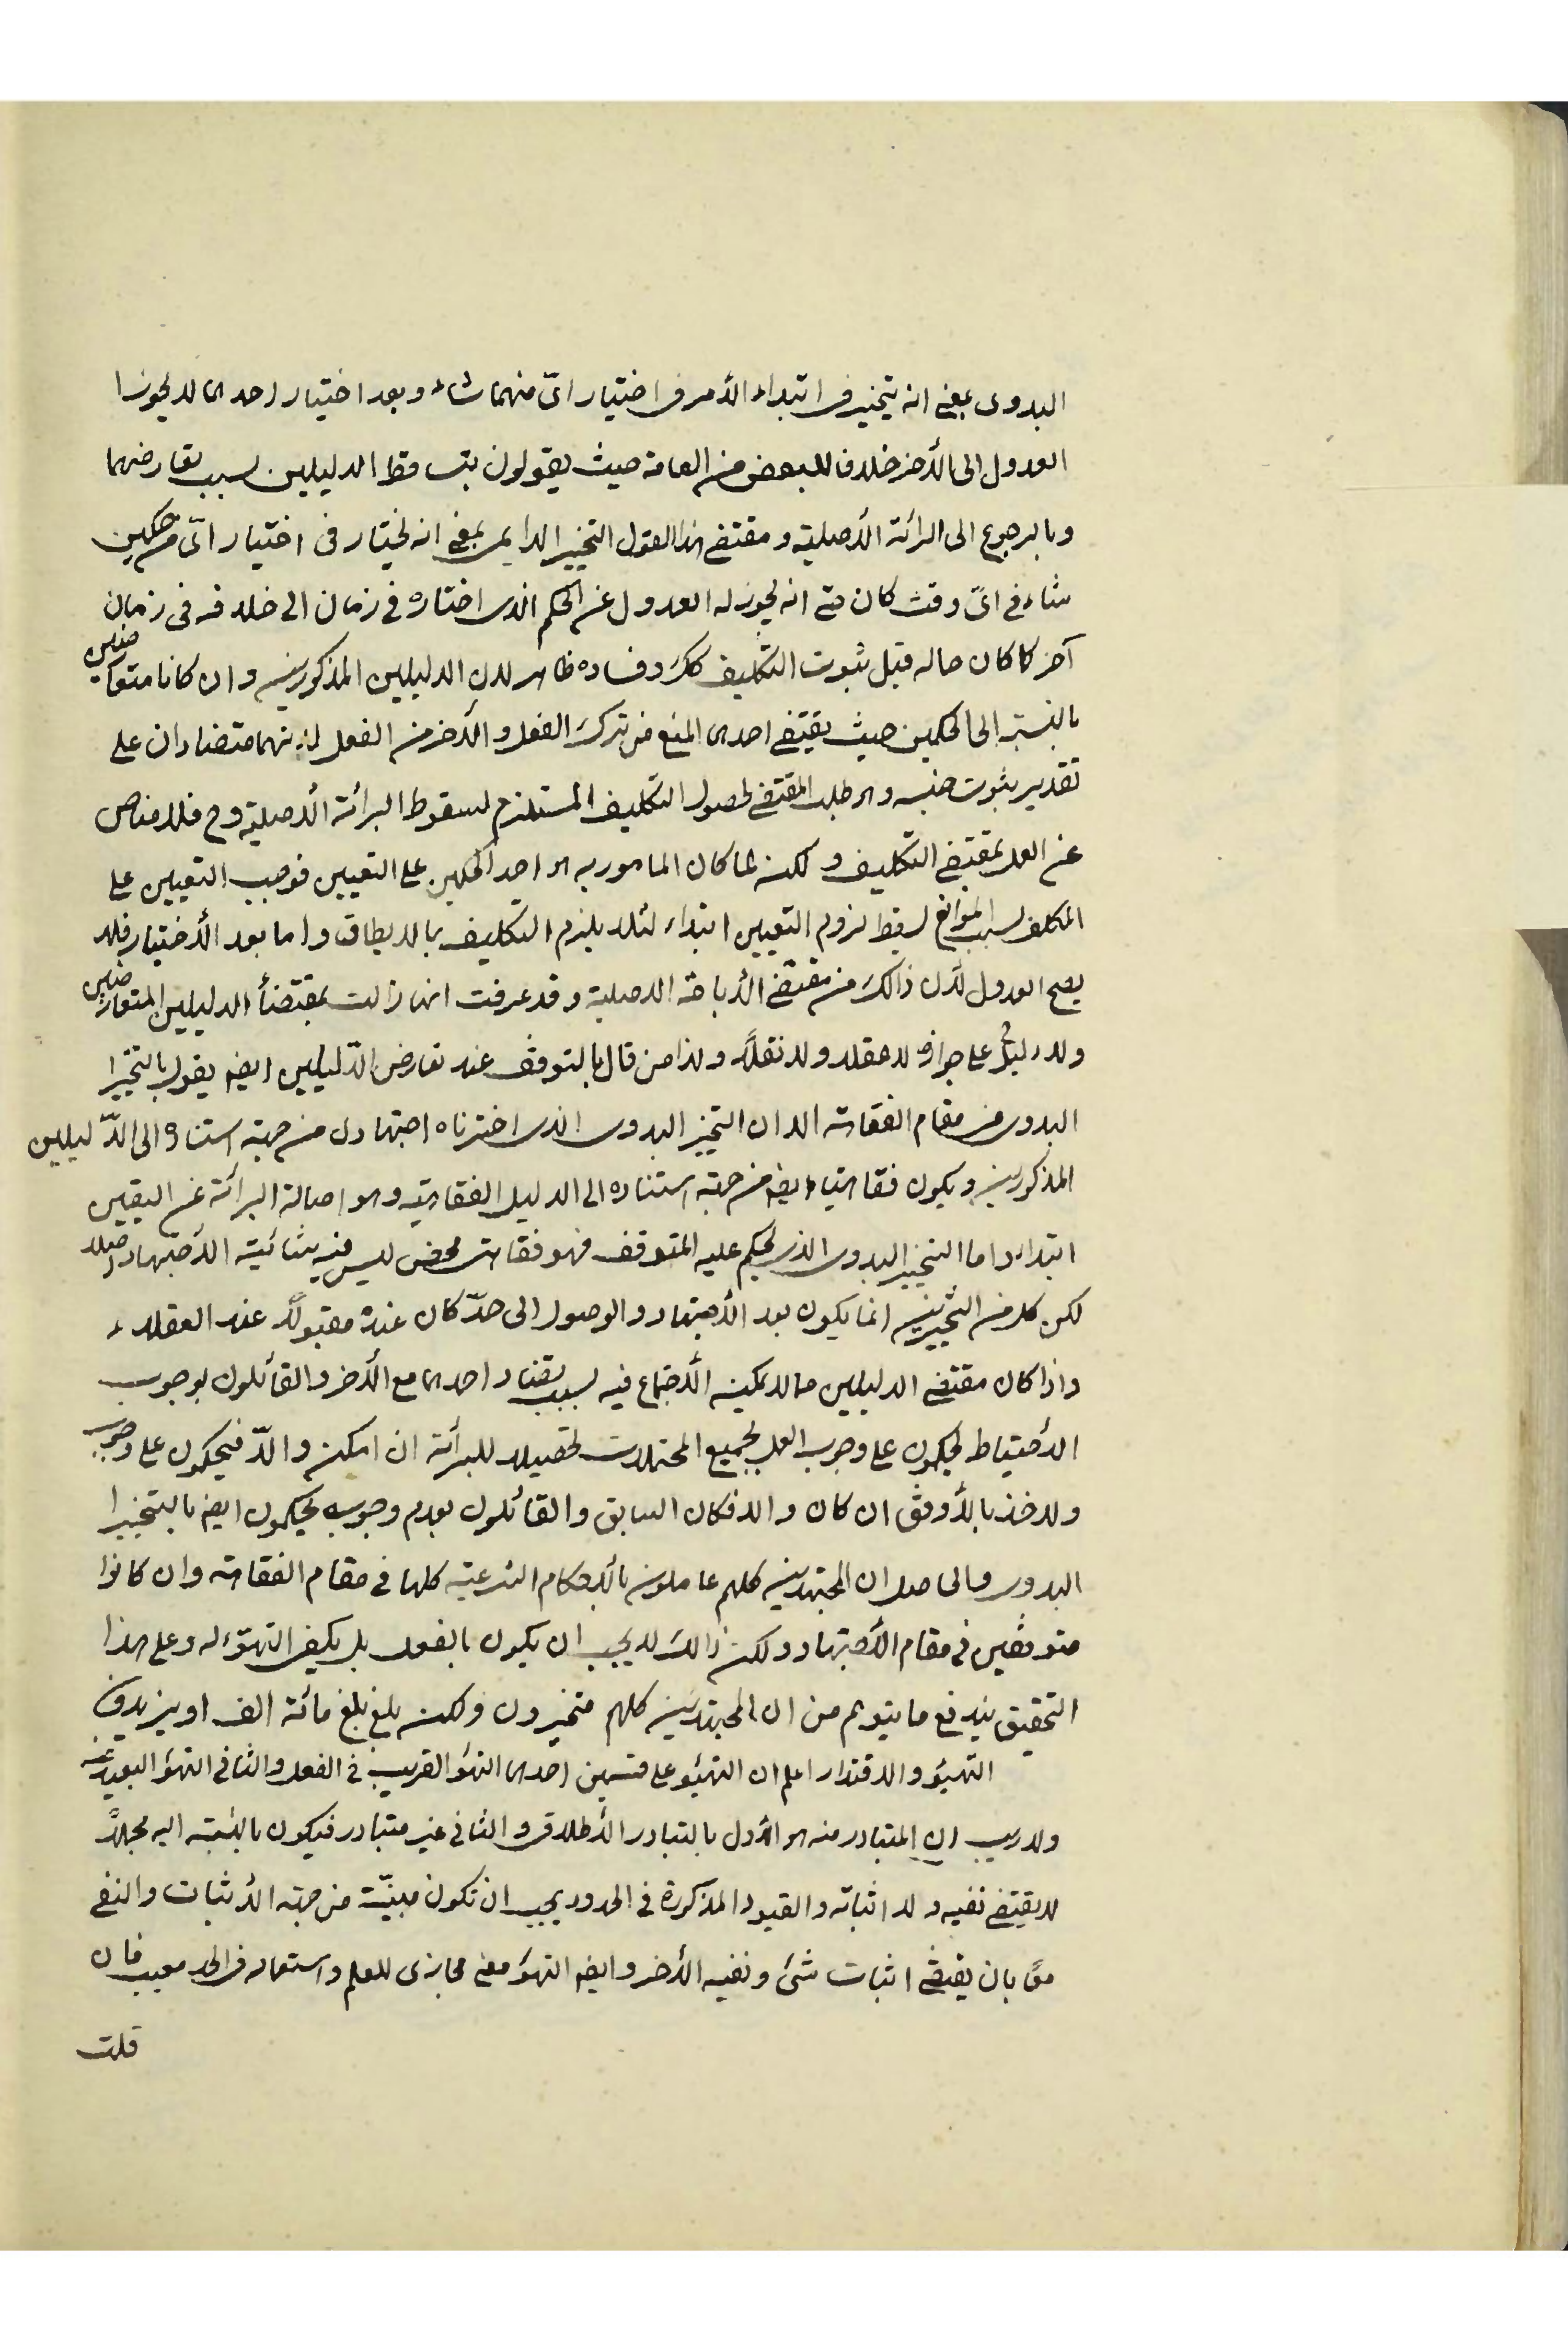 البدوى بمعنى انه يتخير فى ابتداء الأمر فى اختيار اىّ منهما شاء و بعد اختيار احدهما لا يجوز
العدول الى الأخر خلافا للبعض من العامة حيث يقولون بتساقط الدليلين بسبب تعارضهما
و بالرجوع الى البرائة الأصلية و مقتضى هذا القول التخيير الدايمى بمعنى انه يختار فى اختيار اىّ من حكمين
شاء فى اىّ وقت كان حتى انه يجوز له العدول عن الحكم الذى اختاره فى زمان الى خلافه فى زمان
آخر كما كان حاله قبل ثبوت التكليف كك و فساده ظاهر لان الدليلين المذكورين و ان كانا متعارضين
بالنسبة الى الحكمين حيث يقتضى احدهما المنع من ترك الفعل و الأخر من الفعل لانهما متضادان على
تقدير ثبوت جنسه و هو طلب المقتضى لحصول التكليف المستلزم لسقوط البرائة الأصلية و ح فلا مناص
عن العمل بمقتضى التكليف و لكن لما كان المامور به هو احد الحكمين على التعيين فوجب التعيين على
المكلف لسبب الموانع لسقط لزوم التعيين ابتداء لئلا يلزم التكليف بما لا يطاق و اما بعد الأختيار فلا
يصح العدول لأن ذالك من مقتضى الأباحة الاصلية و قد عرفت انها زالت بمقتضأ الدليلين المتعارضين
و لا دليل على جوازه لا عقلا و لا نقلاً و لذا من قال بالتوقف عند تعارض الدّليلين ايضا يقول بالتخير
البدوى من مقام الفقاهة الا ان التخير البدوى الذى اخترناه اجتهادى من جهة استناده الى الدّليلين
المذكورين و يكون فقاهتيا ايضا من جهة استناده الى الدليل الفقاهتى و هو اصالة البرائة عن اليقين
ابتداء و اما التخيير البدوى الذى يحكم عليه المتوقف فهو فقاهتى محض ليس فيه شائبة الأجتهاد اصلا
لكن كلا من التخيرين انما يكون بعد الأجتهاد و الوصول الى حدّ كان عنده مقبولاً عند العقلاء
و اذا كان مقتضى الدليلين مما لا يمكن الأجتماع فيه بسبب تضاد احدهما مع الأخر و القائلون بوجوب
الأحتياط يحكمون على وجوب العمل بجميع المحتملات تحصيلا للبرأئة ان امكن و الاّ فيحكمون على وجوب
و لاخذ بالأوفق ان كان و الا فكان السابق و القائلون بعدم وجوبه يحكمون ايضا بالتخيير
البدوى و الحاصل ان المجتهدين كلهم عاملون بالأحكام الشرعية كلها فى مقام الفقاهة و ان كانوا
متوقفين فى مقام الأجتهاد و لكن ذالك لا يجب ان يكون بالفعل بل يكفى التهيّؤ له و على هذا
التحقيق يندفع ما يتوهم من ان المجتهدين كلهم متخيرون و لكن بلغ بلغ مائة الف او يزيدون
التهيؤ و الاقتدار اعلم ان التهيؤ على قسمين احدهما التهؤ القريب فى الفعل و الثانى التهؤ البعيد عنه
و لا ريب ان المتبادر منه هو الأول بالتبادر الأطلاقى و الثانى غير متبادر فيكون بالنسبة اليه مجملاً
لا يقتضى نفيه و لا اثباته و القيود المذكورة فى الحدود يجب ان تكون مبيّنة من جهة الأثبات و النفى
معًا بان يقتضى اثبات شئ و نفيه الأخر و ايضا التهؤ معنى مجازى للعلم و استعماله فى الحد معيب فان
قلت